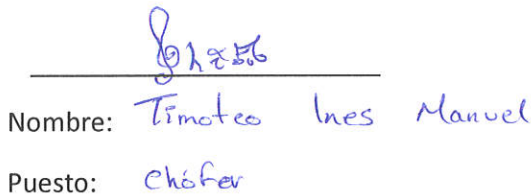 Nombre: Timoteo Ines Manuel
Puesto: Chófer